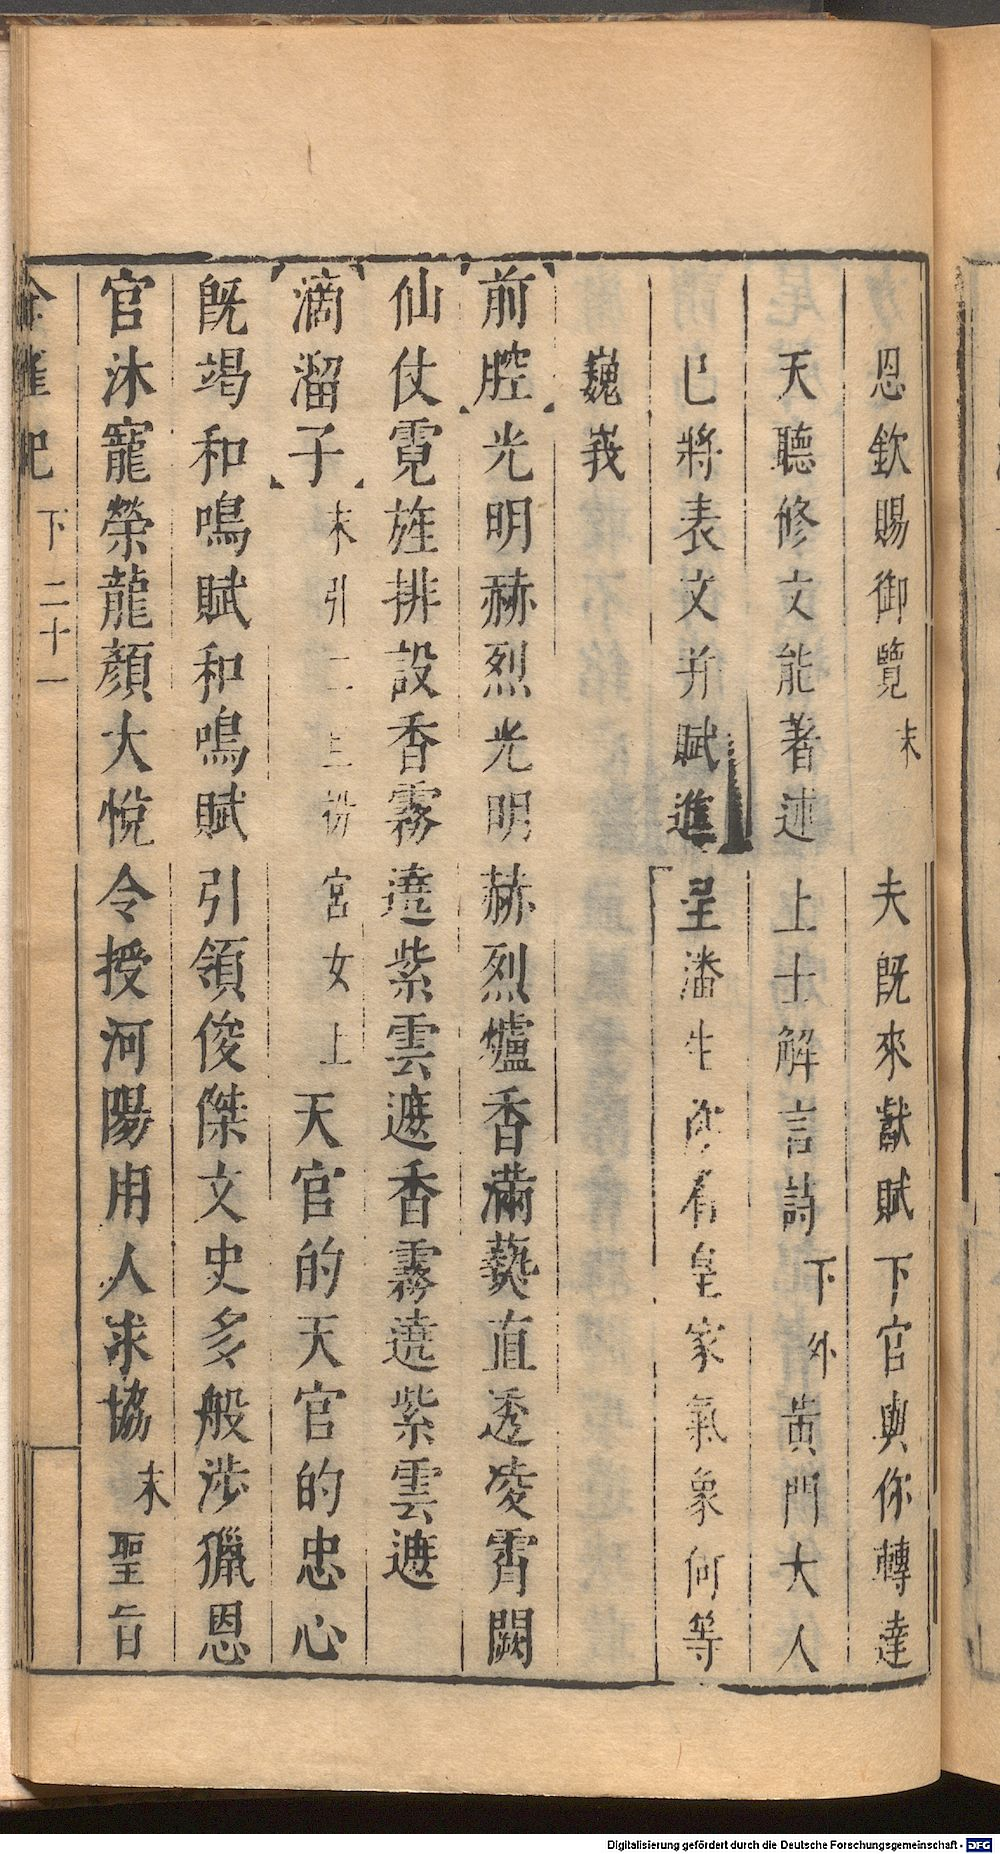 恩欽賜御覽末 夫既來獻賦下官與你轉達
天聽修文能著述上士解言詩下外黃門大人
已將表文并賦進呈潘生你看皇家氣象何等
巍峩
前腔光明赫烈光明赫烈爐香滿爇直透凌霄闕
仙仗霓旌排設香霧遶紫雲遮香霧遶紫雲遮
滴溜子末引二生扮宮女上天官的天官的忠心
既竭和鳴賦和鳴賦引領俊傑文史多般涉獵恩
官沐寵榮龍顏大悅令授河陽用人求協末聖旨
金雀記 下 二十一
Digitalisierung gefördert durch die Deutsche Forschungsgemeinschaft - DFG